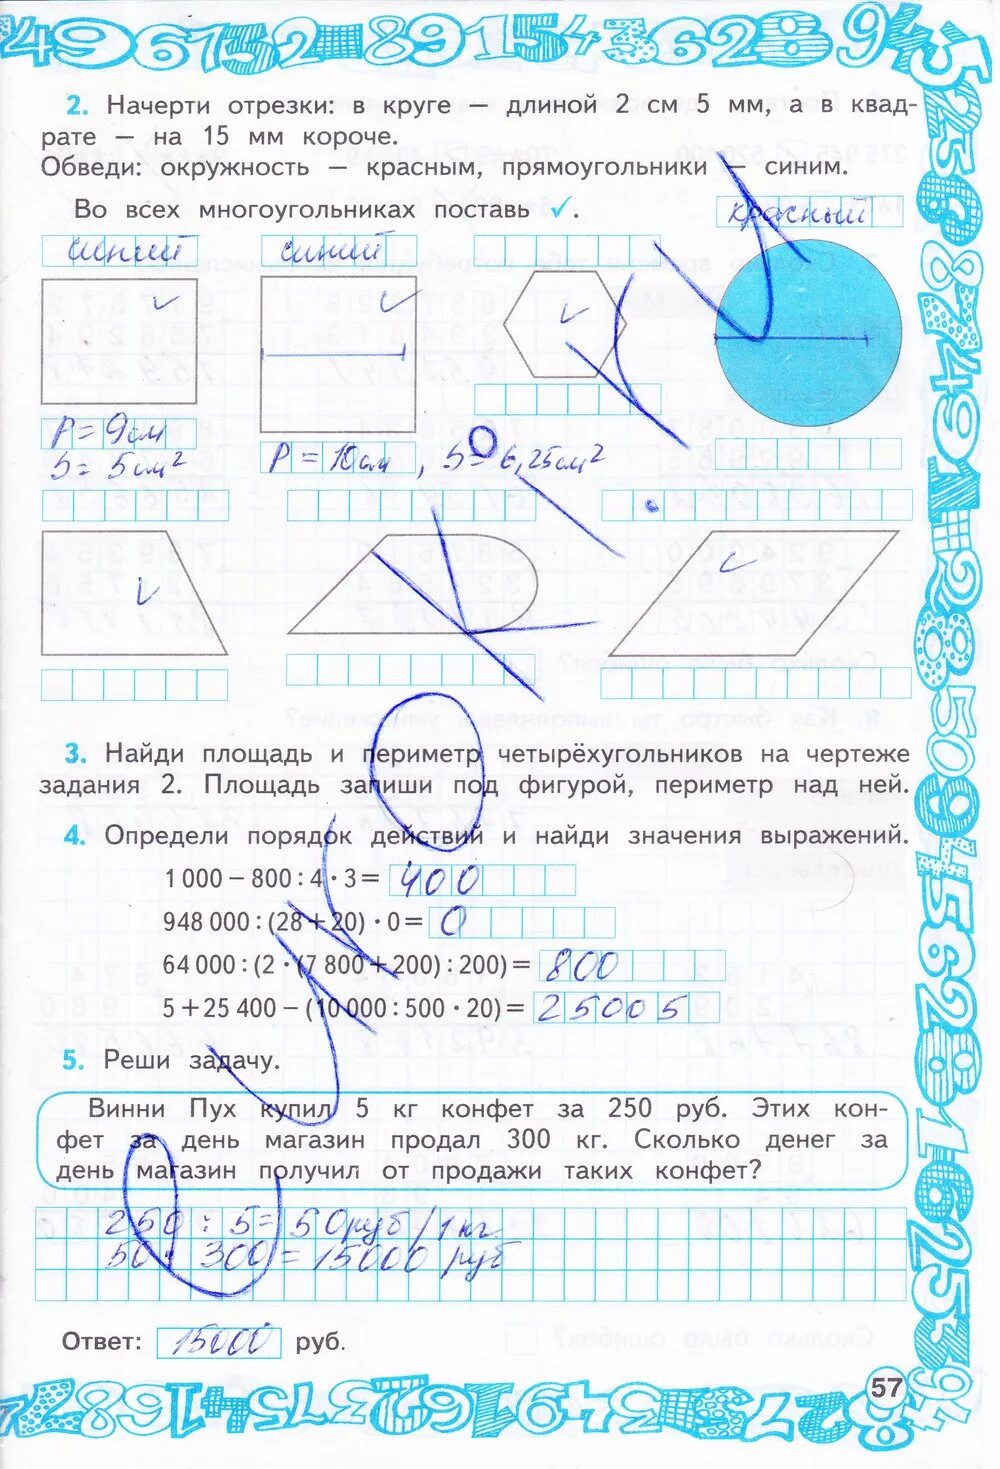 2. Начерти отрезки: в круге — длиной 2 см 5 мм, а в квад-
рате — на 15 мм короче.
Обведи: окружность — красным, прямоугольники — синим.
Во всех многоугольниках поставь ✓.
красный
синий синий
P = 9см
S = 5см²
P = 10см, S = 6,25см²
3. Найди площадь и периметр четырёхугольников на чертеже
задания 2. Площадь запиши под фигурой, периметр над ней.
4. Определи порядок действий и найди значения выражений.
1 000 – 800 : 4 · 3 = 400
948 000 : (28 + 20) · 0 = 0
64 000 : (2 · (7 800 + 200) : 200) = 800
5 + 25 400 – (10 000 : 500 · 20) = 25005
5. Реши задачу.
Винни Пух купил 5 кг конфет за 250 руб. Этих кон-
фет за день магазин продал 300 кг. Сколько денег за
день магазин получил от продажи таких конфет?
250 : 5 = 50 руб/1 кг.
50 · 300 = 15000 руб
Ответ: 15000 руб.
57